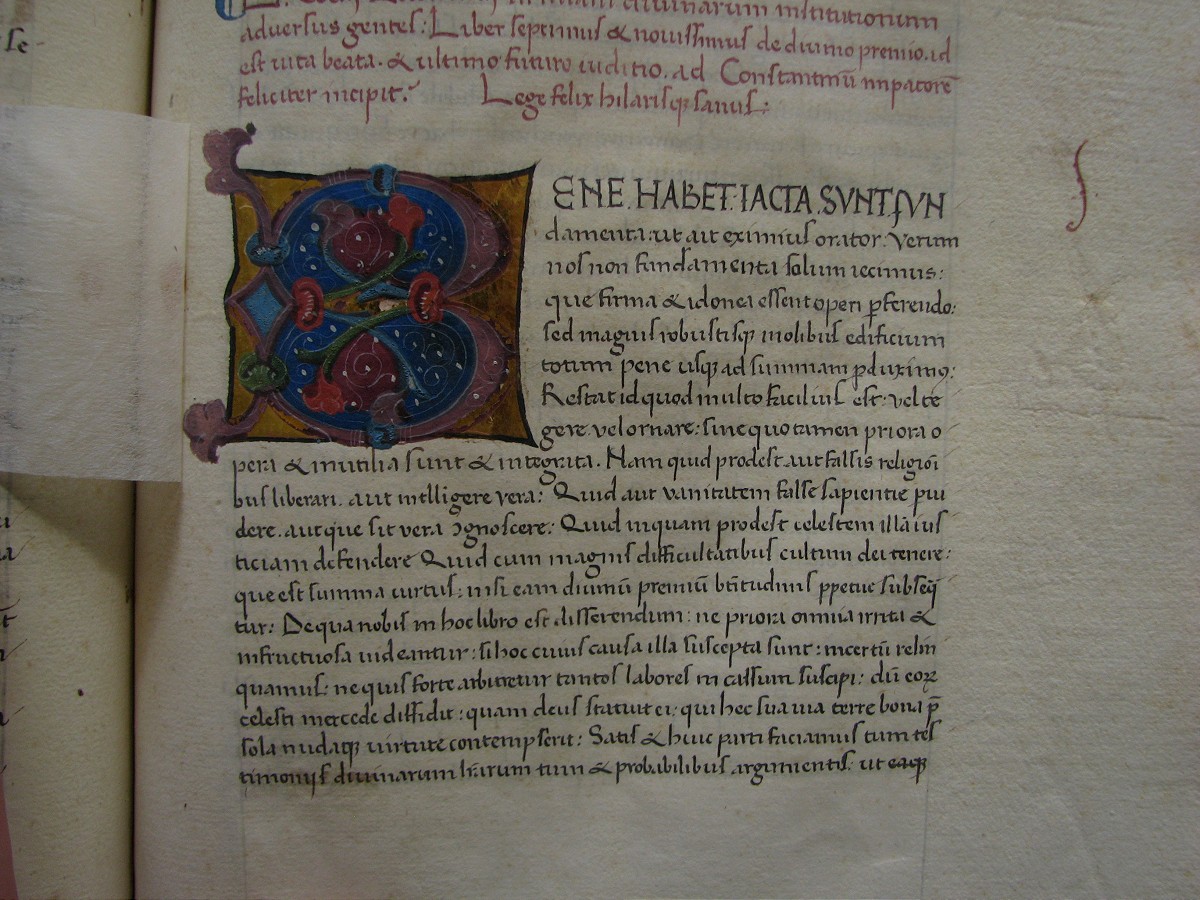 divinarum institutionum
adversus gentes: Liber septimus & novissimus de divino premio. id
est vita beata. & ultimo futuro iuditio. ad Constantinū impatorē
feliciter incipit: Lege felix hilarisq; sanus:
BENE. HABET. IACTA. SVNT. FVN
damenta: ut ait eximius orator: Verum
nos non fundamenta solum iecimus:
que firma & idonea essent operi pferendo:
sed magnis robustisq; molibus edificium
totum pene usq; ad summam pduximus:
Restat id quod multo facilius est: vel te
gere. vel ornare: sine quo tamen priora o
pera & inutilia sunt & integrita. Nam quid prodest. aut falsis religiōi
bus liberari. aut intelligere vera: Quid aut vanitatem false sapientie pvi
dere. aut que sit vera ɔgnoscere: Quid inquam prodest celestem illā ius
ticiam defendere Quid cum magnis difficultatibus cultum dei tenere:
que est summa virtus: nisi eam divinū premiū btitudinis ppetue subseq̄
tur: De qua nobis in hoc libro est disserendum: ne priora omnia irrita &
infructuosa videantur: si hoc cuius causa illa suscepta sunt: incertū relin
quamus: ne quis forte arbitretur tantos labores in cassum suscipi: dū eoꝝ
celesti mercede diffidit: quam deus statuit ei: qui hec sua via terre bona p̄
sola nudaq; virtute contempserit: Satis & huic parti faciamus tum tes
timonijs divinarum lr̄arum tum & probabilibus argumentis: ut eaq;
se-